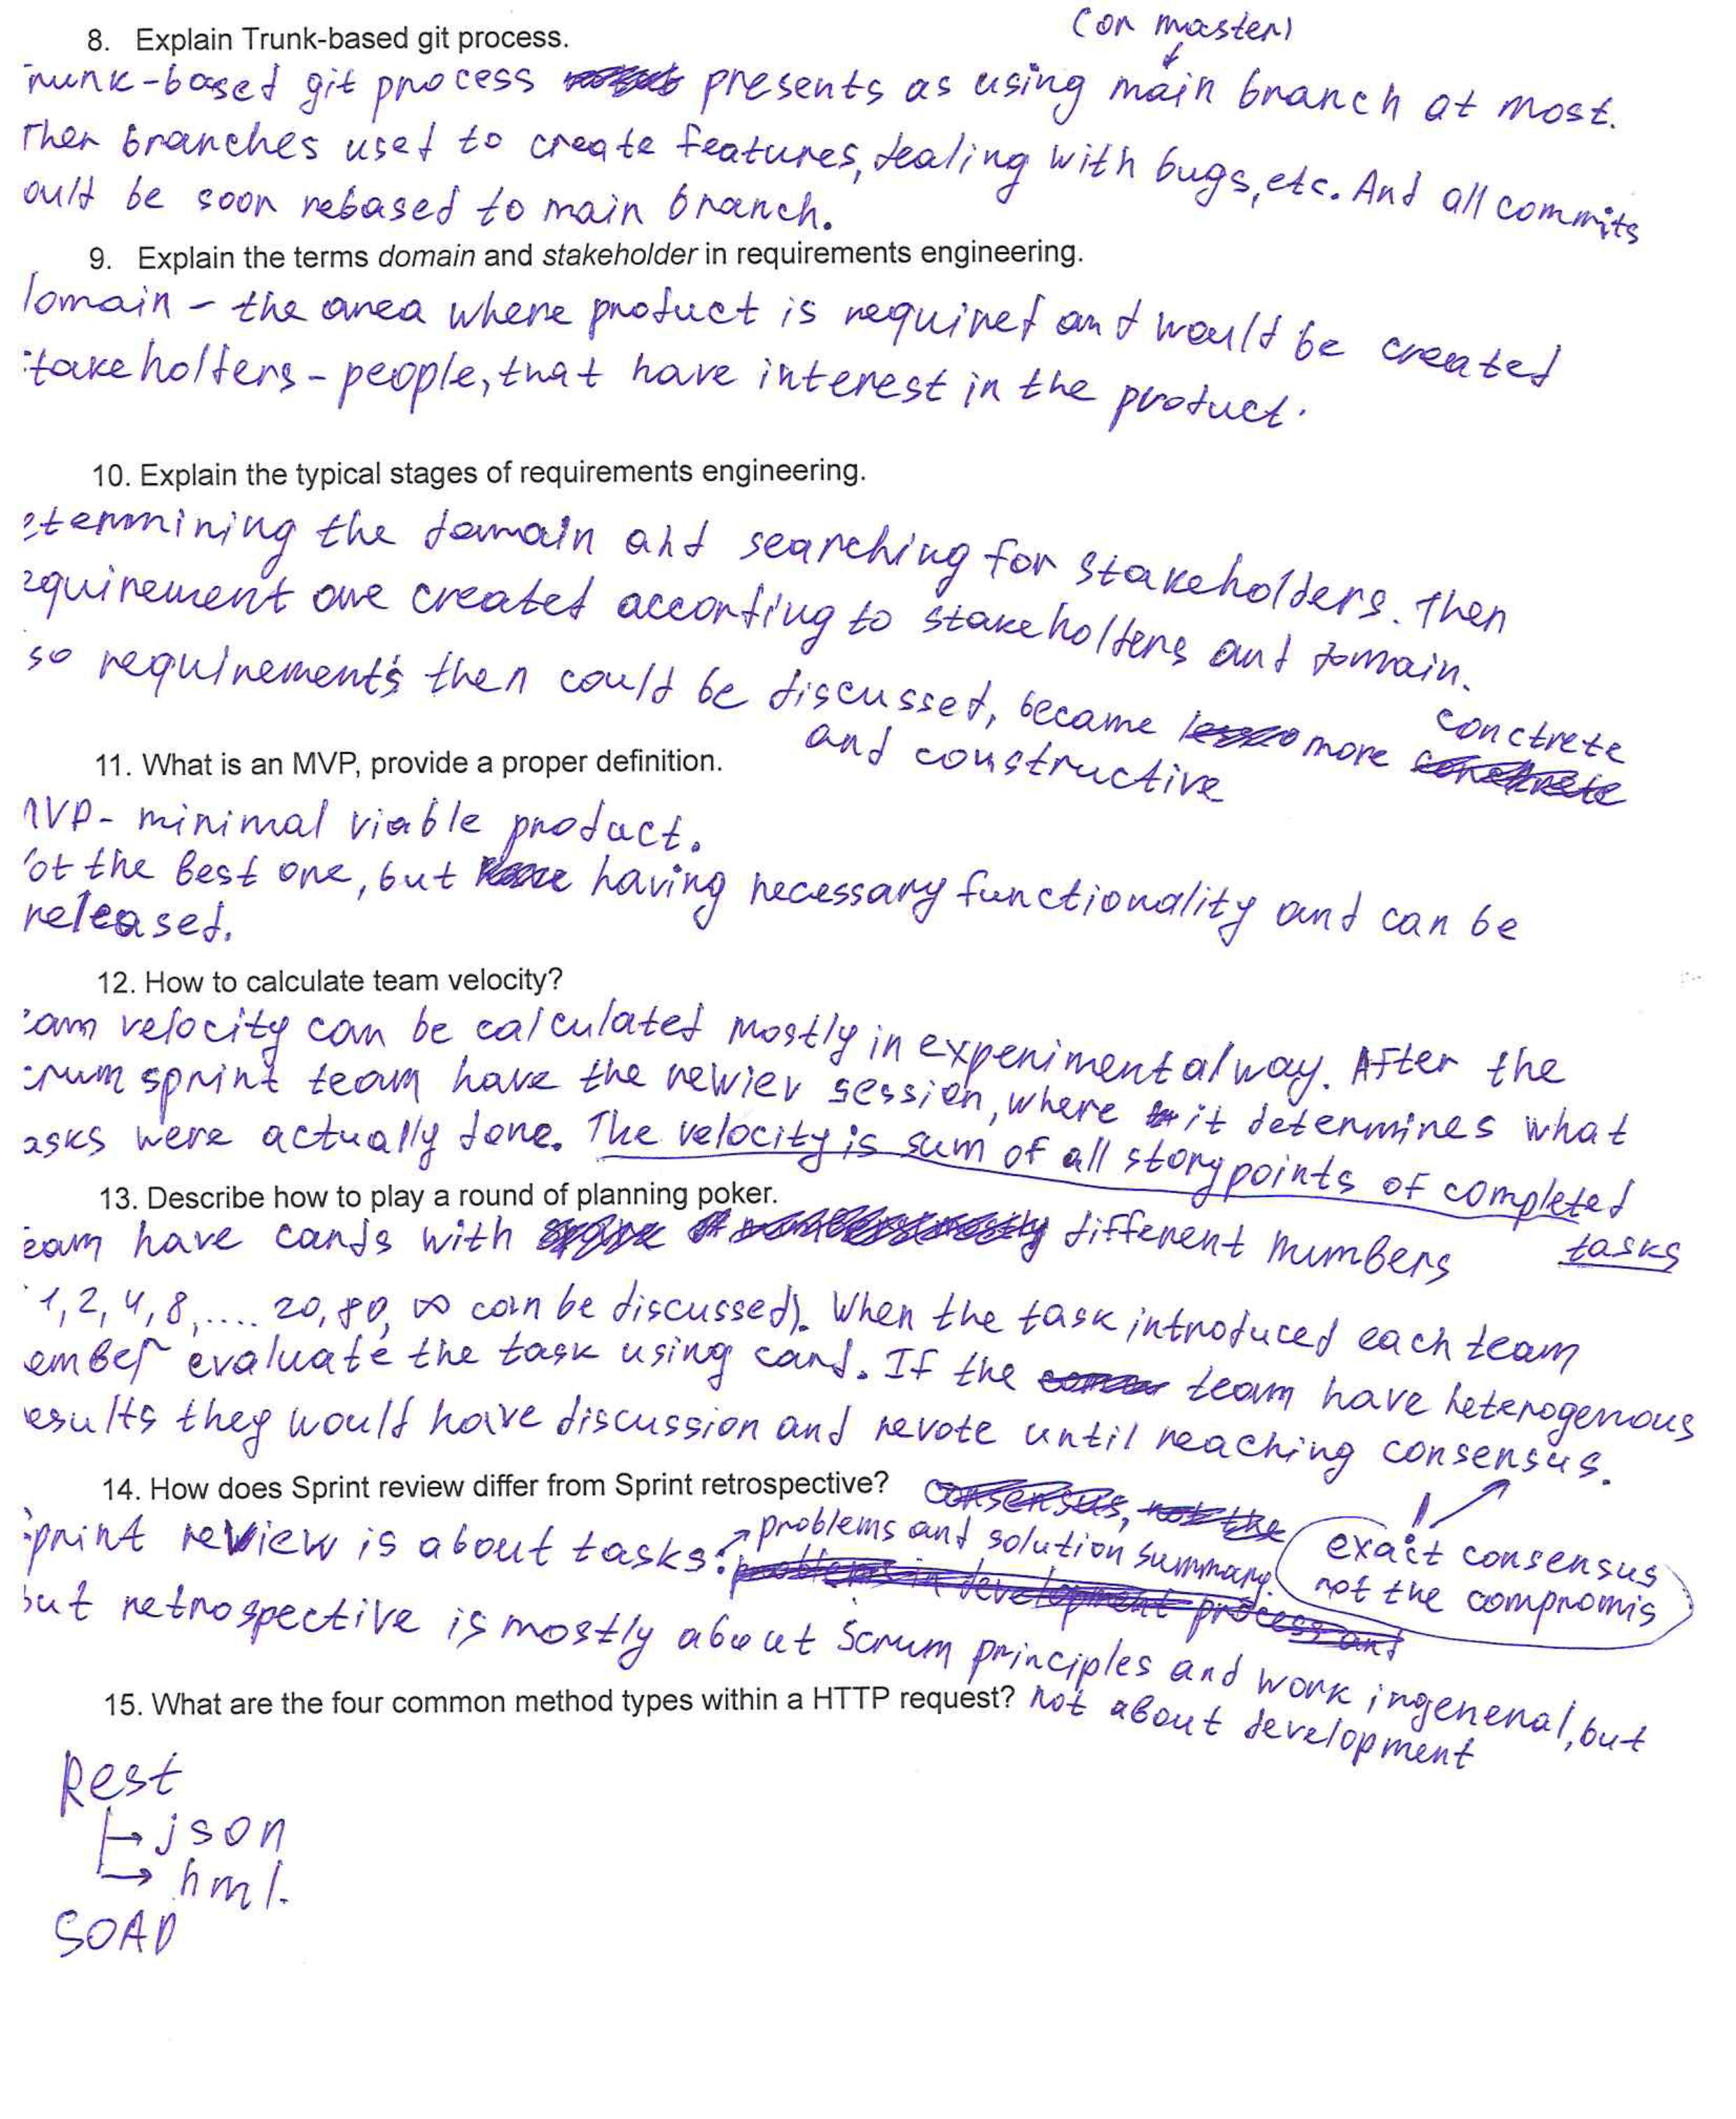 (or master)
8. Explain Trunk-based git process.
runk-based git process presents as using main branch at most.
ther branches used to create features, dealing with bugs, etc. And all commits
ould be soon rebased to main branch.
9. Explain the terms domain and stakeholder in requirements engineering.
omain - the area where product is required and would be created
takeholders - people, that have interest in the product.
10. Explain the typical stages of requirements engineering.
etermining the domain and searching for stakeholders. Then
equirement are created according to stakeholders and domain.
so requirements then could be discussed, became more conctrete
and constructive
11. What is an MVP, provide a proper definition.
MVP- minimal viable product.
ot the best one, but having necessary functionality and can be
released.
12. How to calculate team velocity?
eam velocity can be calculated mostly in experimental way. After the
crum sprint team have the review session, where it determines what
asks were actually done. The velocity is sum of all story points of completed
tasks
13. Describe how to play a round of planning poker.
eam have cards with different numbers
1, 2, 4, 8, .... 20, 80, ∞ can be discussed). When the task introduced each team
ember evaluate the task using card. If the team have heterogenous
esults they would have discussion and revote until reaching consensus.
14. How does Sprint review differ from Sprint retrospective?
! exact consensus
not the compromis
print review is about tasks: problems and solution summary.
but retrospective is mostly about Scrum principles and work in general, but
15. What are the four common method types within a HTTP request?
not about development
Rest
→ json
→ hml.
SOAP